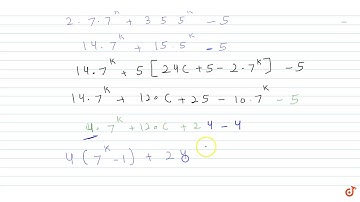 2.7.7^k + 3 5 5^k - 5
14.7^k + 15.5^k - 5
14.7^k + 5 [24C + 5 - 2.7^k] - 5
14.7^k + 120C + 25 - 10.7^k - 5
4.7^k + 120C + 24 - 4
4(7^k - 1) + 24